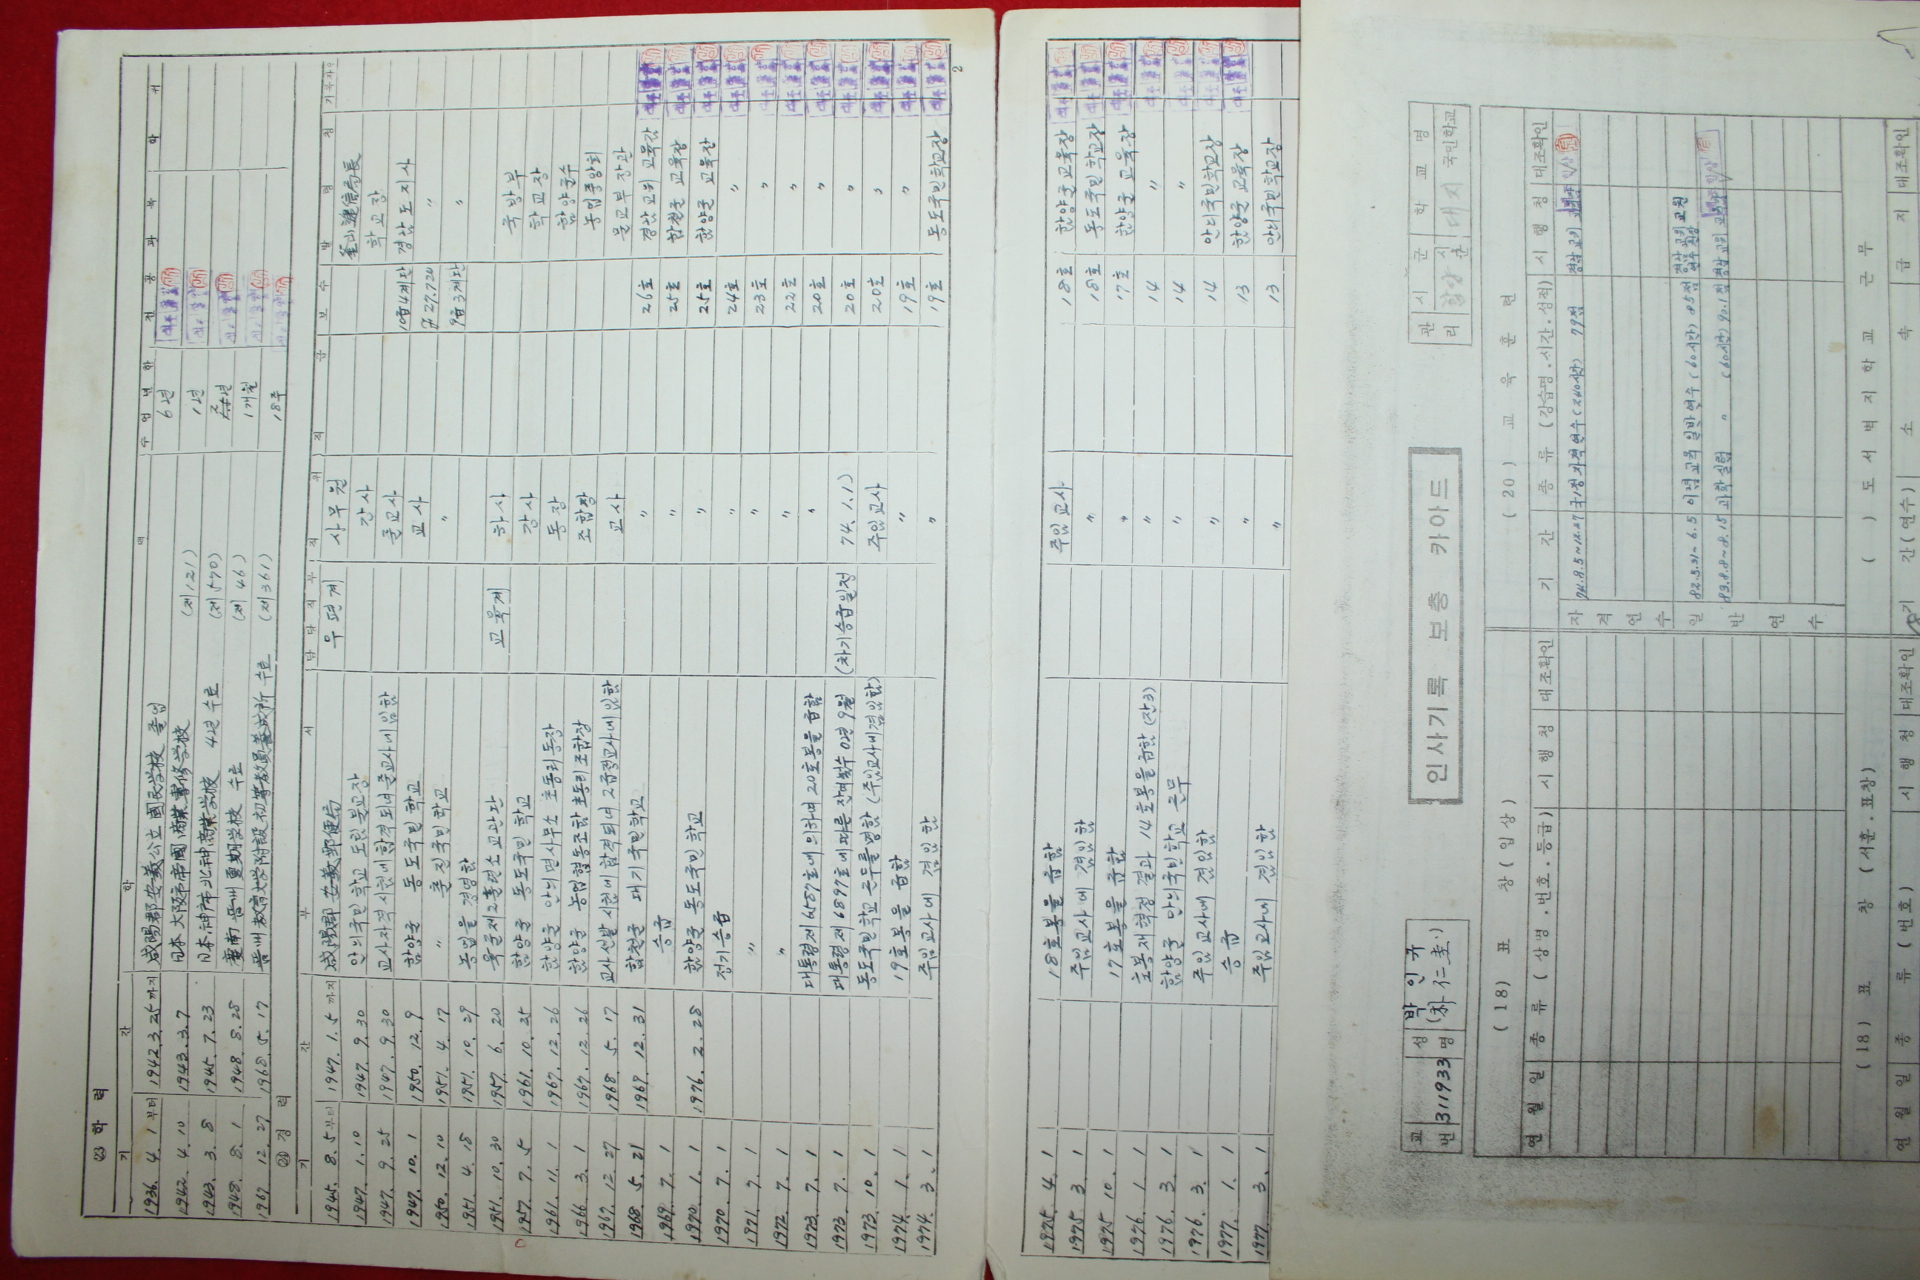 ㉓ 학 력
기 간 학 력 수업년한 전공과목 학위
1936. 4. 1 부터 1942. 3. 25 까지 咸陽郡 安義公立 國民学校 졸업 6년
1942. 4. 10 1943. 3. 7 日本 大阪市 帝國 商業 專修学校 (제121) 1년
1943. 3. 8 1945. 7. 23 日本 神戶市 北神商業学校 4년 수료 (제570)
1948. 8. 1 1948. 8. 28 慶南 晋州 夏期学校 수료 (제 46) 1개월
1967 12. 27 1968. 5. 17 晋州 教育大学 附設 初等教員養成所 수료 (제361) 18주
경 력
기 간 부 서 담당직무 직 위 직 급 보 수 발 령 청
1945. 8. 5 부터 1947. 1. 5 까지 咸陽郡 安義郵便局 우편계 사무원 釜山遞信局長
1947. 1. 10 1947. 9. 30 안의국민학교 도림분교장 강사 학교장
1947. 9. 25 1947. 9. 30 교사자격시험에 합격되여 준교사에 임함 준교사 10급4계단 경남도지사
1947. 10. 1 1950. 12. 9 함양군 동도국민학교 교사 〃
1950. 12. 10 1951. 4. 17 〃 국민학교 〃 9급3계단 〃
1951. 4. 18 1951. 10. 29 농업을 경영함
1951. 10. 30 1957. 6. 20 육군 제2훈련소 교관단 교육계 하사 국방부
1957. 7. 5 1961. 10. 25 함양군 동도국민학교 강사 학교장
1961. 11. 1 1967. 12. 26 함양군 안의면사무소 초동리동장 동장 함양군수
1966. 3. 1 1967. 12. 26 함양군 농업협동조합 초동리조합장 조합장 농협중앙회
1967. 12. 27 1968. 5. 17 교사선발시험에 합격되여 2급정교사에 임함 교사 문교부장관
1968. 5. 21 1969. 12. 31 합천군 대기국민학교 〃 26호 경남교위 교육감
1969. 7. 1 승급 〃 25호 합천군 교육장
1970. 1. 1 1976. 2. 28 함양군 동도국민학교 〃 25호 함양군 교육장
1970. 7. 1 정기승급 〃 24호 〃
1971. 7. 1 〃 〃 23호 〃
1972. 7. 1 〃 〃 22호 〃
1973. 7. 1 대통령제6587호에 의하여 20호봉을 급함 〃 20호 〃
1973. 7. 1 대통령제6897호에 따른 잔여월수 0년 9월 (차기승급일정 74.1.1) 20호 〃
1973. 10. 1 동도국민학교 근무를 명함 (주임교사에 겸임함) 주임교사 20호 〃
1974. 1. 1 19호봉을 급함 〃 19호 〃
1974. 3. 1 주임교사에 겸임함 〃 19호 동도국민학교장
2
1975. 4. 1 18호봉을 급함 주임교사 18호 함양군교육장
1975. 3. 1 주임교사에 겸임함 〃 18호 동도국민학교장
1975. 10. 1 17호봉을 급함 〃 17호 함양군교육장
1976. 1. 1 호봉재획정 결과 14호봉을 급함 (잔3) 〃 14 〃
1976. 3. 1 함양군 안의국민학교 근무 〃 14 〃
1976. 3. 1 주임교사에 겸임함 〃 14 안의국민학교장
1977. 1. 1 승급 〃 13 함양군교육장
1977. 3. 1 주임교사에 겸임함 〃 13 안의국민학교장
인사기록 보충 카아드
교번 311933 성명 박인규 (朴仁圭)
관리 시군 함양 시군 학교명 대지 국민학교
(18) 표 창 (입상)
연월일 종류 (상명.번호.등급) 시행청 대조확인
(20) 교 육 훈 련
기 간 종류 (강습명.시간.성적) 시행청 대조확인
자격연수
74.8.5~12.27 1정자격연수 (240시간) 77점 경남교위
일반연수
82.5.31~6.5 이념교육 일반연수 (60시간) 85점 경남교위 교원연수원장
83.8.8~8.15 과학실험 〃 (60시간) 90.1점 경남교위
(18) 표 창 (서훈.표창)
연월일 종류 (번호) 시행청 대조확인
( ) 도서벽지학교 근무
기간 (연수) 소속 급지 대조확인